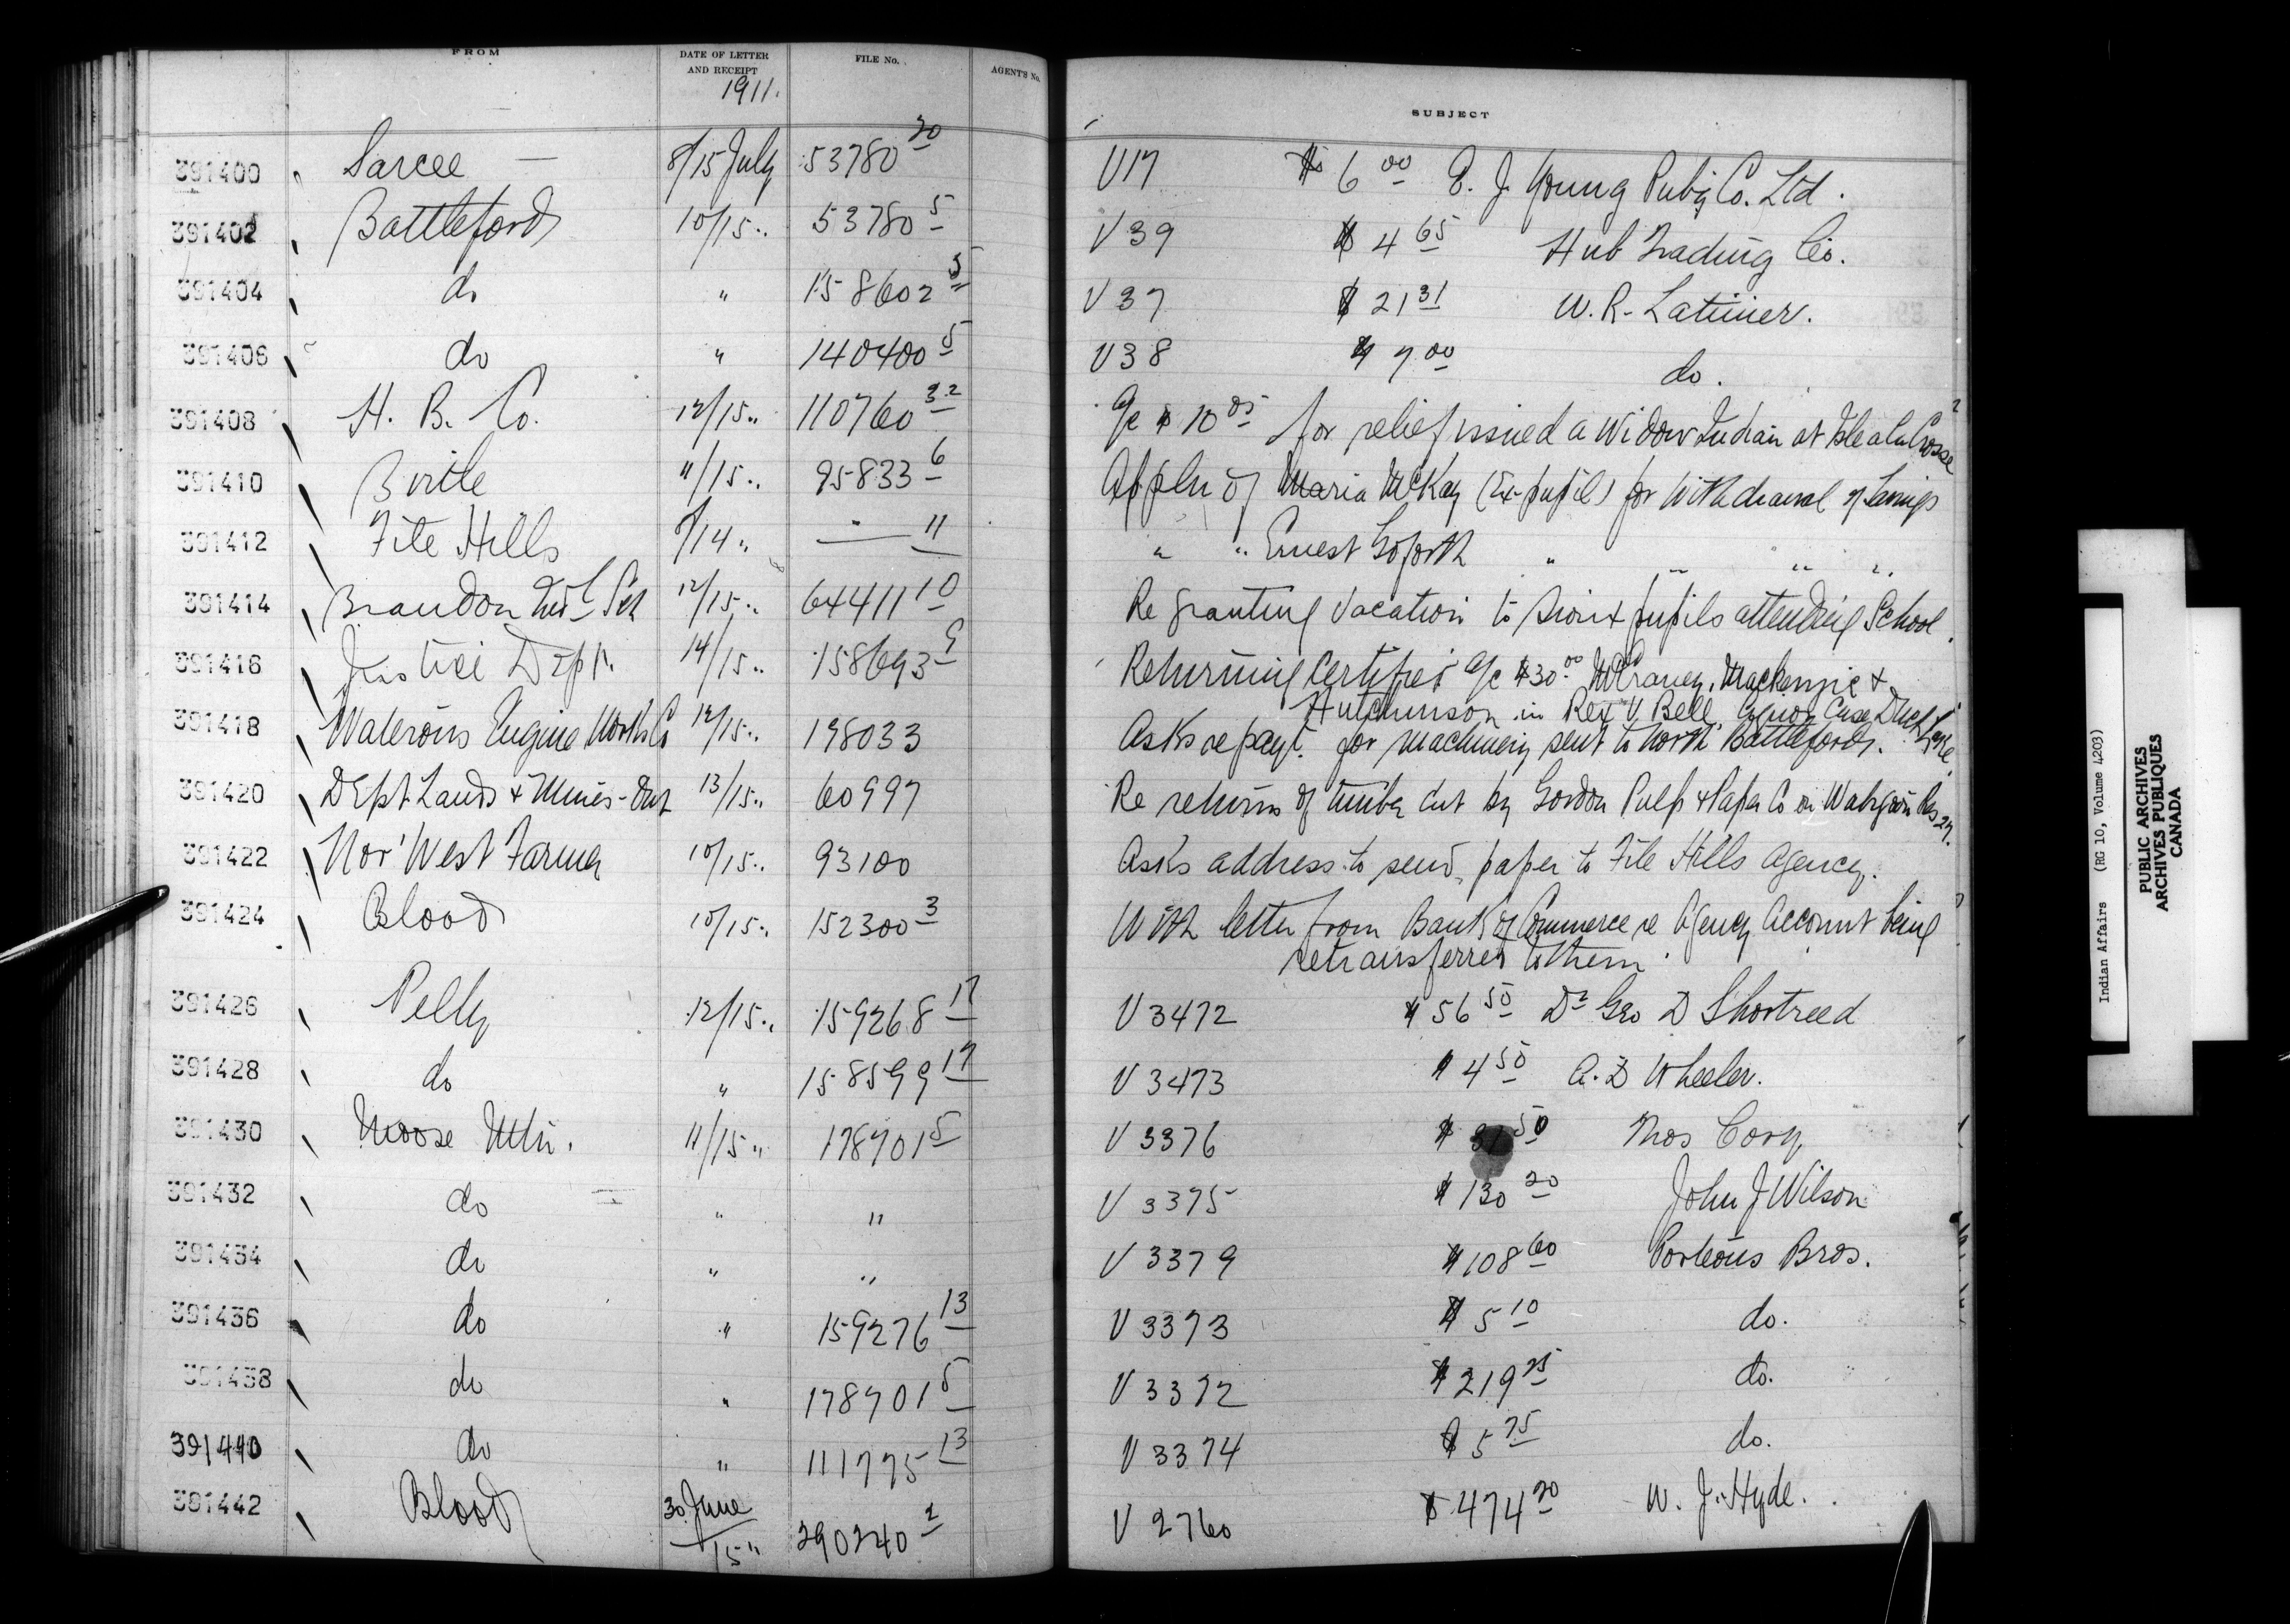 FROM DATE OF LETTER AND RECEIPT FILE No. AGENT'S No. SUBJECT
1911.
391400 Sarcee — 8/15 July 53780 20 V17 $6 00 E. J. Young Pubg Co. Ltd.
391402 Battleford 10/15 " 53780 5 V39 $4 65 Hub Trading Co.
391404 do " 158602 5 V37 $21 31 W. R. Latimer.
391406 do " 140400 5 V38 $7 00 do.
391408 H. B. Co. 12/15 " 110760 32 a/c $10 05 for relief issued a Widow Indian at Isle a la Crosse
391410 Birtle 11/15 " 95833 6 Appln of Maria McKay (Ex-pupil) for Withdrawal of Savings
391412 File Hills /14 " — " — 11 " " Ernest Goforth " " " "
391414 Brandon Indl Sch 12/15 " 64411 10 Re granting Vacation to Sioux pupils attending School.
391416 Justice Dept. 14/15 " 158693 9 Returning Certified a/c $30 00 McCraney, Mackenzie &
Hutchinson in Rex V. Bell, Liquor Case Duck Lake.
391418 Waterous Engine Works Co 12/15 " 198033 Asks re payt. for machinery sent to North Battleford.
391420 Dept Lands & Mines - Ont 13/15 " 60997 Re returns of timber cut by Gordon Pulp & Paper Co on Wabigoon Res 27.
391422 Nor' West Farmer 10/15 " 93100 Asks address to send paper to File Hills Agency.
391424 Blood 10/15 " 152300 3 With letter from Bank of Commerce re Agency Account being
retransferred to them.
391426 Pelly 12/15 " 159268 17 V 3472 $56 50 Dr Geo D Shortreed
391428 do " 158599 17 V 3473 $4 50 A. D Wheeler.
391430 Moose Mtn. 11/15 " 178701 5 V 3376 $31 50 Thos Cory
391432 do " " V 3375 $130 20 John J Wilson
391434 do " " V 3379 $108 60 Porteous Bros.
391436 do " 159276 13 V 3373 $5 10 do.
391438 do " 178701 5 V 3372 $219 25 do.
391440 do " 111775 13 V 3374 $5 75 do.
391442 Blood 30 June/15 " 290240 2 V 2760 $474 20 W. J. Hyde.
Indian Affairs (RG 10, Volume 4203)
PUBLIC ARCHIVES
ARCHIVES PUBLIQUES
CANADA